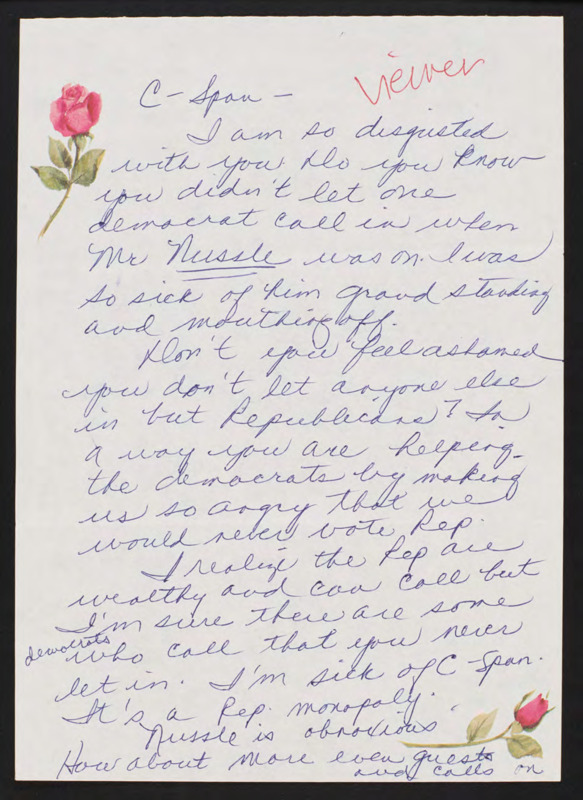 viewer
C-Span -
I am so disgusted
with you. Do you know
you didn't let one
democrat call in when
Mr Nussle was on. I was
so sick of him grand standing
and mouthing off.
Don't you feel ashamed
you don't let anyone else
in but Republicans? In
a way you are helping
the democrats by making
us so angry that we
would never vote Rep.
I realize the Rep are
wealthy and can call but
I'm sure there are some
democrats who call that you never
let in. I'm sick of C-Span.
It's a Rep. monopoly.
Nussle is obnoxious.
How about more even guests
and calls on